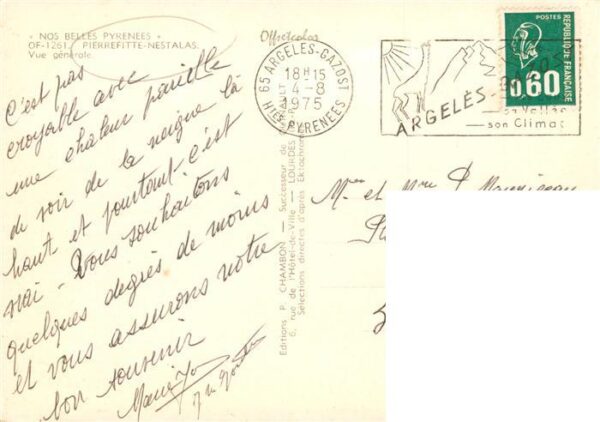 « NOS BELLES PYRENEES »
OF-1261. PIERREFITTE-NESTALAS.
Vue générale
Offretcolor
C'est pas
croyable avec
une chaleur pareille
de voir de la neige là
haut et pourtant c'est
vrai - Vous souhaitons
quelques degrés de moins
et vous assurons notre
bon souvenir
Editions P. CHAMBON — Successeur de
6, rue de l'Hôtel-de-Ville — LOURDES
Sélections directes d'après Ektachrom
65 ARGELES-GAZOST
18H15
4-8
1975
HTES PYRENEES
ARGELÈS-
son Climat
POSTES
REPUBLIQUE FRANÇAISE
0,60
Mr et Mme P.